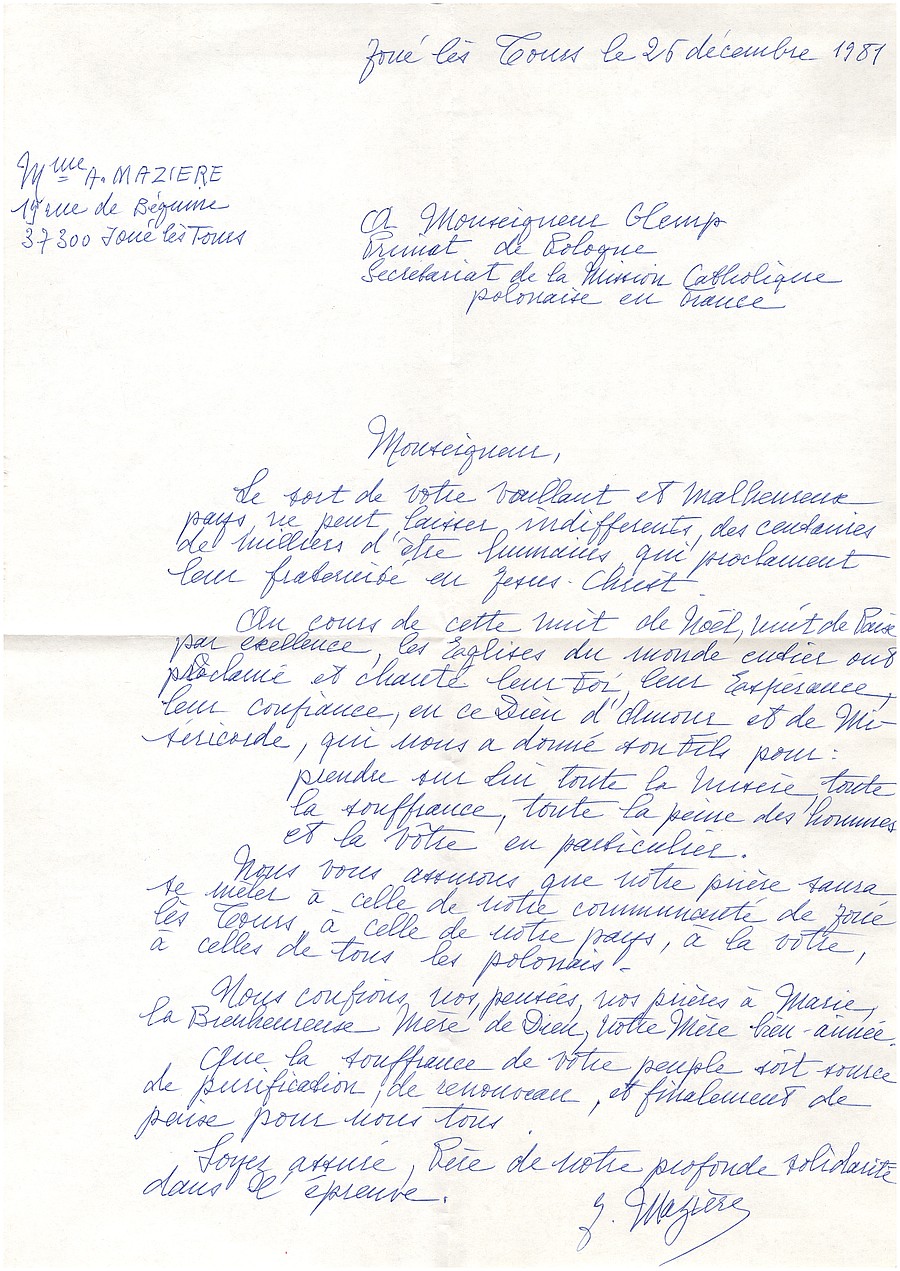 Joué lès Tours le 25 décembre 1981
Mme A. MAZIERE
19 rue de Béguine
37300 Joué lès Tours
A Monseigneur Glemp
Primat de Pologne
Secrétariat de la Mission Catholique
polonaise en France
Monseigneur,
Le sort de votre vaillant et malheureux
pays, ne peut laisser, indifférents, des centaines
de milliers d'être humains qui proclament
leur fraternité en Jesus-Christ.
Au cours de cette nuit de Noël, nuit de Paix
par exellence, les Eglises du monde entier ont
proclamé et chanté leur Foi, leur Espérance,
leur confiance, en ce Dieu d'Amour et de Mi-
séricorde, qui nous a donné son Fils pour :
prendre sur Lui toute la Misère, toute
la souffrance, toute la peine des hommes
et la vôtre en particulier.
Nous vous assurons que notre prière saura
se mêler à celle de notre communauté de Joué
lès Tours, à celle de notre pays, à la vôtre,
à celles de tous les polonais -
Nous confions, nos, pensées, nos prières à Marie,
la Bienheureuse Mère de Dieu, notre Mère bien-aimée.
Que la souffrance de votre peuple soit source
de purification, de renouveau, et finalement de
paix pour nous tous.
Soyez assuré, Père de notre profonde solidarité
dans l'épreuve.
J. Mazière